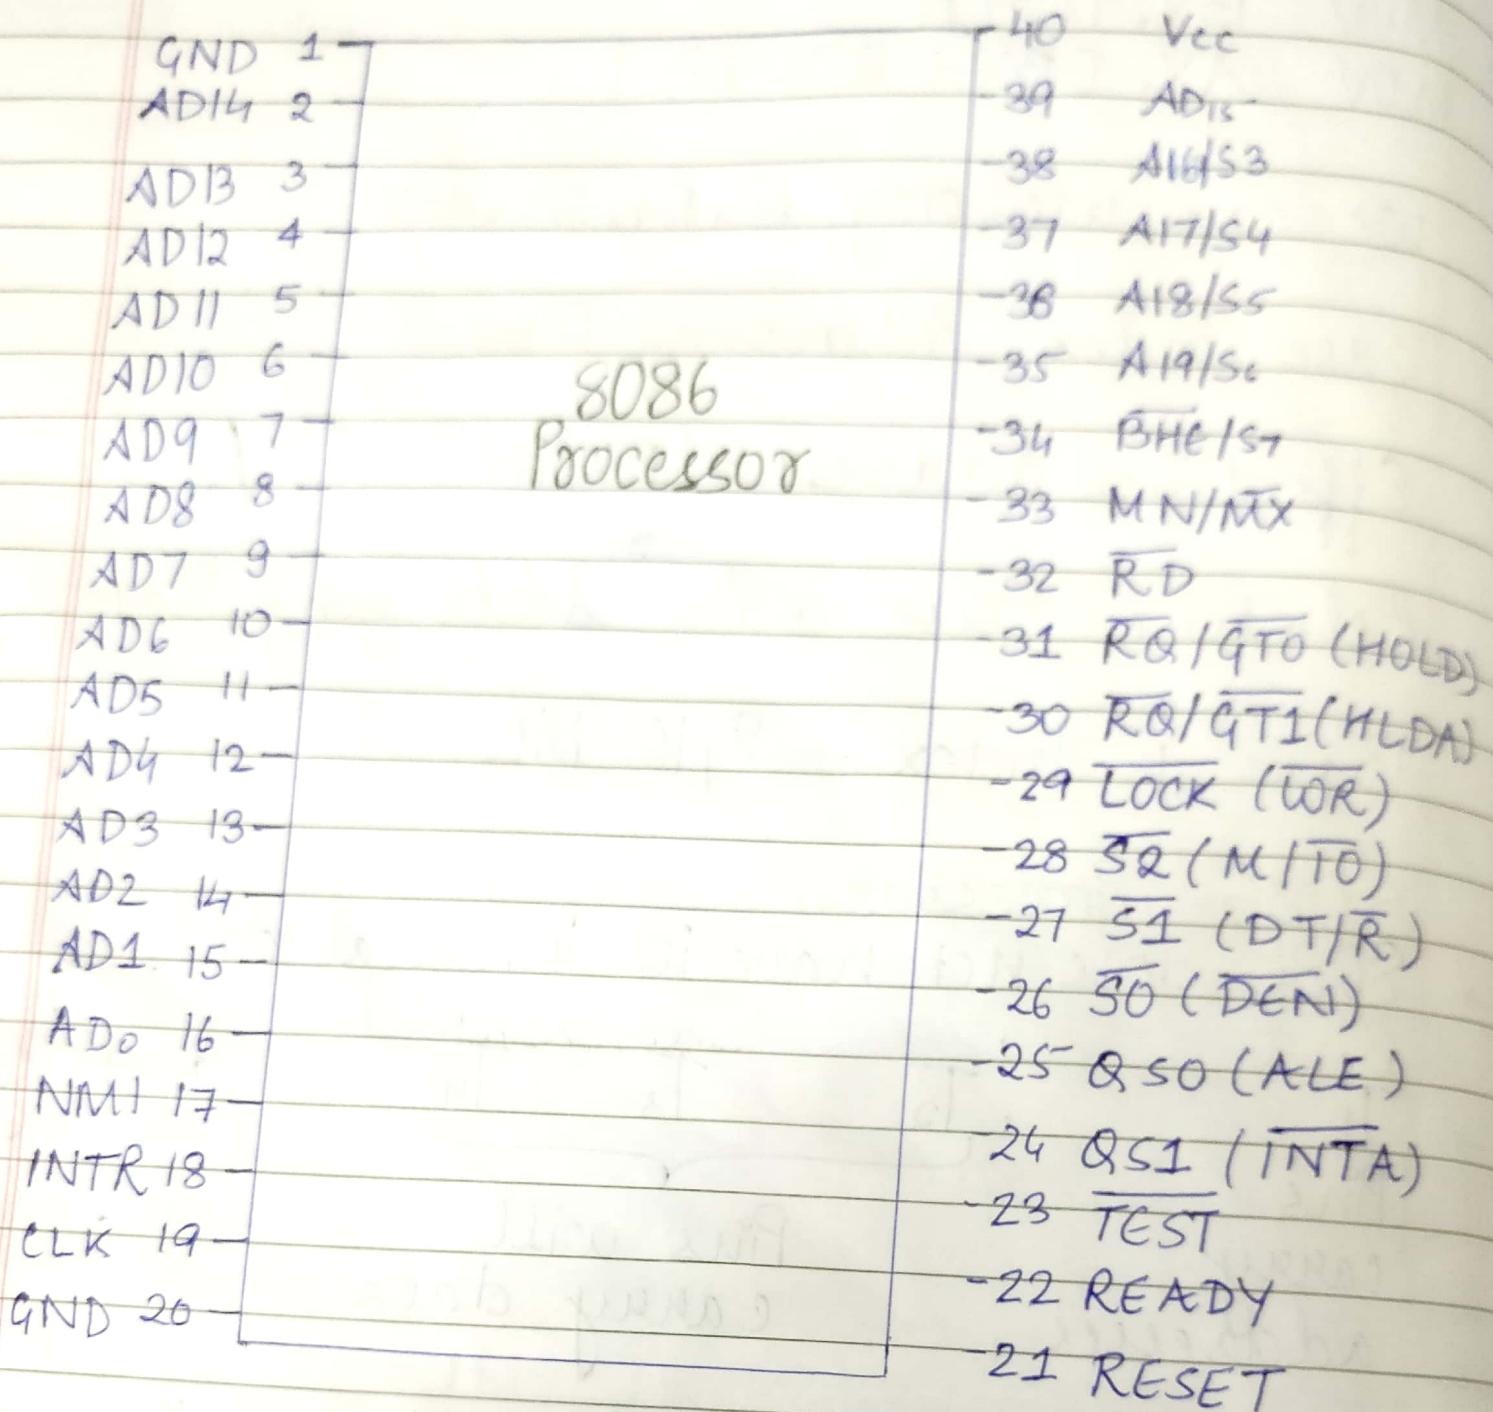 GND 1
AD14 2
AD13 3
AD12 4
AD11 5
AD10 6
AD9 7
AD8 8
AD7 9
AD6 10
AD5 11
AD4 12
AD3 13
AD2 14
AD1 15
AD0 16
NMI 17
INTR 18
CLK 19
GND 20
8086
Processor
40 Vcc
39 AD15
38 A16/S3
37 A17/S4
36 A18/S5
35 A19/S6
34 B̅H̅E̅/S7
33 MN/M̅X̅
32 R̅D̅
31 R̅Q̅/G̅T̅0̅ (HOLD)
30 R̅Q̅/G̅T̅1̅ (HLDA)
29 L̅O̅C̅K̅ (W̅R̅)
28 S̅2̅ (M/I̅O̅)
27 S̅1̅ (DT/R̅)
26 S̅0̅ (D̅E̅N̅)
25 QS0 (ALE)
24 QS1 (I̅N̅T̅A̅)
23 T̅E̅S̅T̅
22 READY
21 RESET